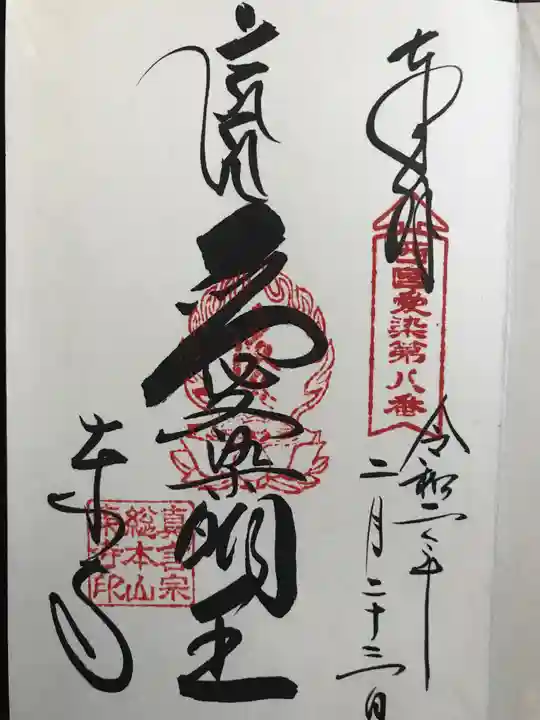 奉拝
西国愛染第八番
令和二年
二月二十三日
愛染明王
東寺
真言宗
総本山
東寺印